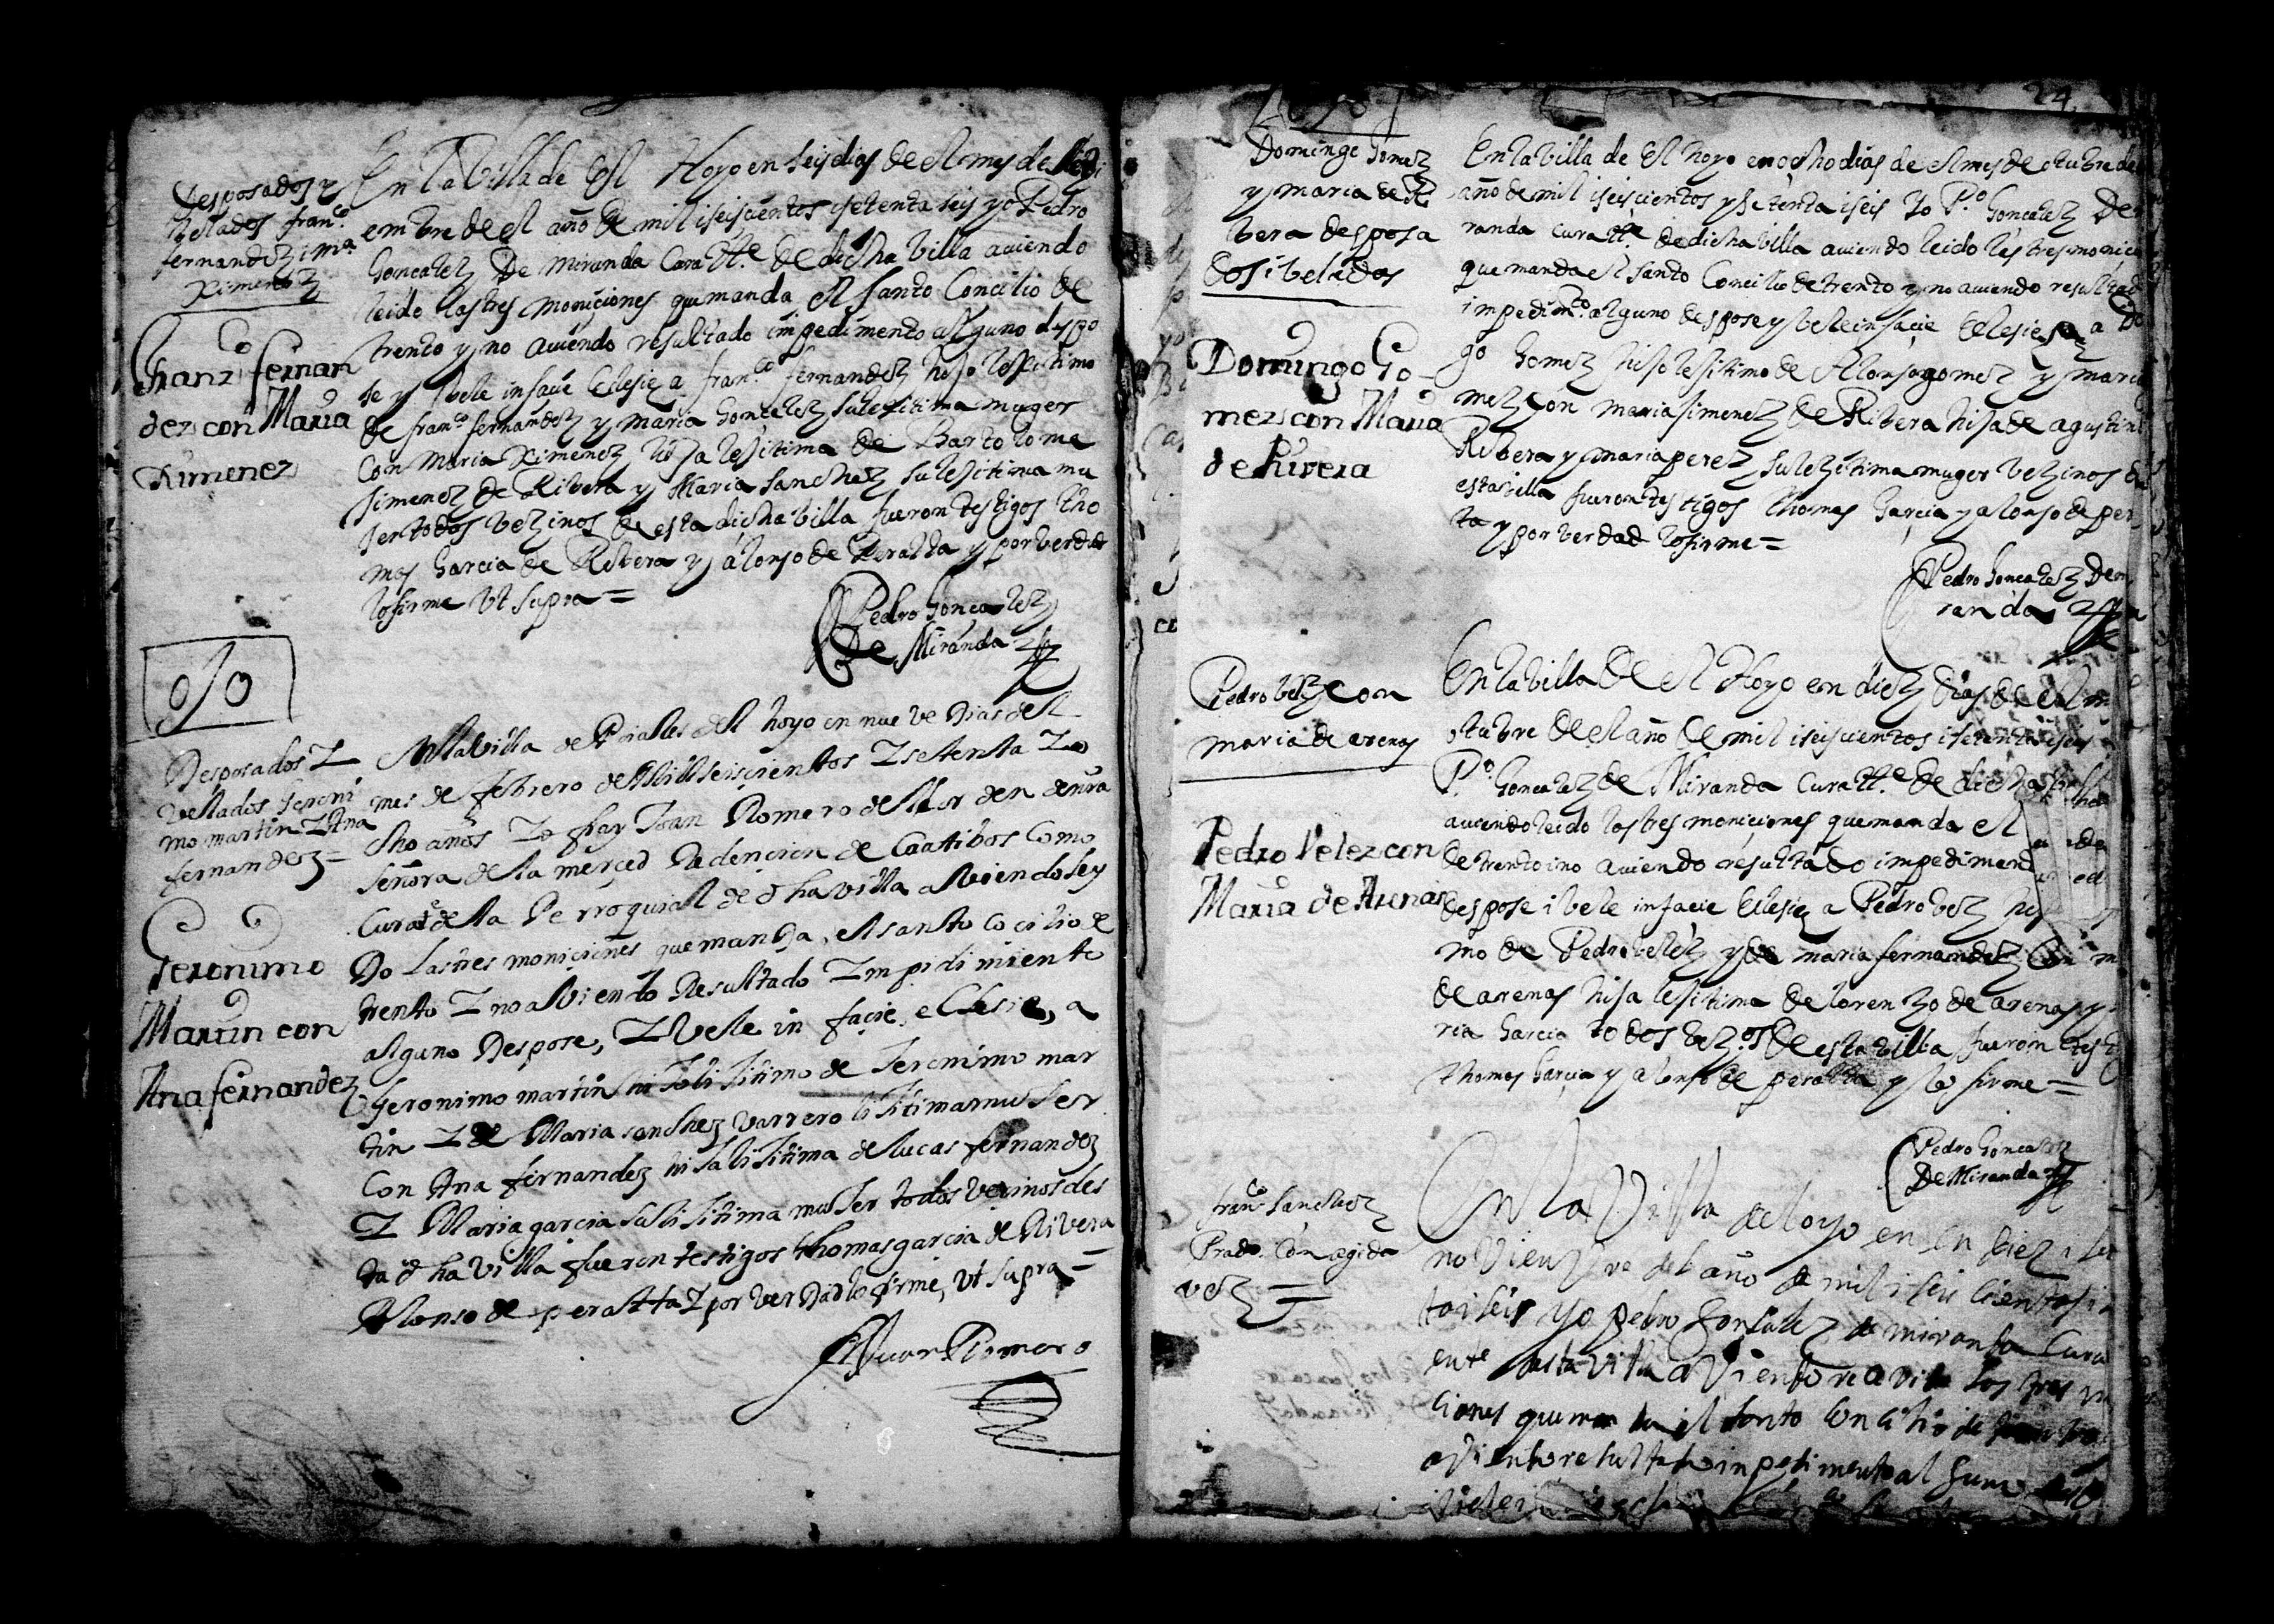 Desposados y
velados fran.co
fernandez i m.a
Ximenez
Franz.o fernan
dez con Maria
Ximenez
En la Villa de El Hoyo en seis dias de el mes de
embre de el año de mil i seiscientos i setenta i seis yo Pedro
Goncalez De Miranda Cura tt.e de dicha villa auiendo
leido las tres moniciones que manda el santo Concilio de
trento y no auiendo resultado impedimento alguno despo
se y vele in facie Eclesie a fran.co fernandez hijo lejitimo
de fran.co fernandez y maria Goncalez su lejitima muger
Con Maria Ximenez hija lejitima de Bartolome
Simenez de Ribera y Maria Sanchez su lejitima mu
jer todos vezinos de esta dicha villa fueron testigos tho
mas Garcia de Ribera y alonso de Peralta y por verdad
lo firme ut supra =
Pedro Goncalez
De Miranda
Desposados I
vellados Geroni
mo martin I Ana
fernandez =
Geronimo
Martin con
Ana fernandez
En la villa de El hoyo en nueve Dias del
mes de febrero de Mill seiscientos I setenta I o
cho años Io fray Joan Romero del or den de nra
Señora de la merçed Redencion de Cautibos Como
Curat.e de la Perroquial de dha villa aviendo ley
Do las tres moniciones que manda el santo Cocilio de
trento I no aviendo Resultado Impidimiento
alguno Despose, I Vele in façie eClesie, a
Geronimo martin hijo lijitimo de Jeronimo mar
tin I de Maria sanchez varrero lijitima mujer
Con Ana fernandez hija lijitima de lucas fernandez
I Maria garcia su lijitima mujer todos vezinos des
ta dha villa fueron testigos thomas garcia de Rivera
Alonso de peralta I por verDad lo firme, ut supra =
Fr Juan Romero
24
1676
Domingo Gomez
y maria de Ri
bera desposa
dos i belados
Domingo Go-
mez con Maria
de Rivera
En la villa de El hoyo en ocho dias de el mes de otubre de
año de mil i seiscientos y setenta i seis Yo P.o Goncalez De
randa cura tt.e de dicha villa auiendo leido las tres monici
que manda el santo Concilio de trento y no auiendo resultad
impedim.to alguno despose y vele in facie Eclesie a Do
go Gomez hijo lesitimo de Alonso gomez y maria
mez con maria simenez de Ribera hija de agustin
Ribera y maria perez su lejitima muger vezinos de
esta villa fueron testigos thomas Garcia y alonso de per
ta y por verdad lo firme =
Pedro Goncalez De m
randa
Pedro Velez con
maria de arenas
Pedro Velez con
Maria de Arenas
En la villa De el Hoyo en diez dias de el m
otubre de el año de mil i seiscientos i setenta i seis
P.o Goncalez de Miranda Cura tt.e de dicha
auiendo leido las tres moniciones que manda el
de trento i no auiendo resultado impediment
despose i vele in facie Eclesie a Pedro velez hij
mo de Pedro velez y de maria fernandez Con m
de arenas hija lesitima de lorenzo de arenas y
ria Garcia todos vez.os de esta villa fueron test
thomas Garcia y alonso de peralta y lo firme =
Pedro Goncalez
De Miranda
fran.co Sanchez
Prado Con
velez =
En la Villa del oyo en diez i
novienvre del año de mil i seis cientos i
ta i seis yo pedro gonsalez de miranda Cura
ente desta villa aviendo
ciones que manda el santo Concilio de
aviendo resultado inpedimento algun